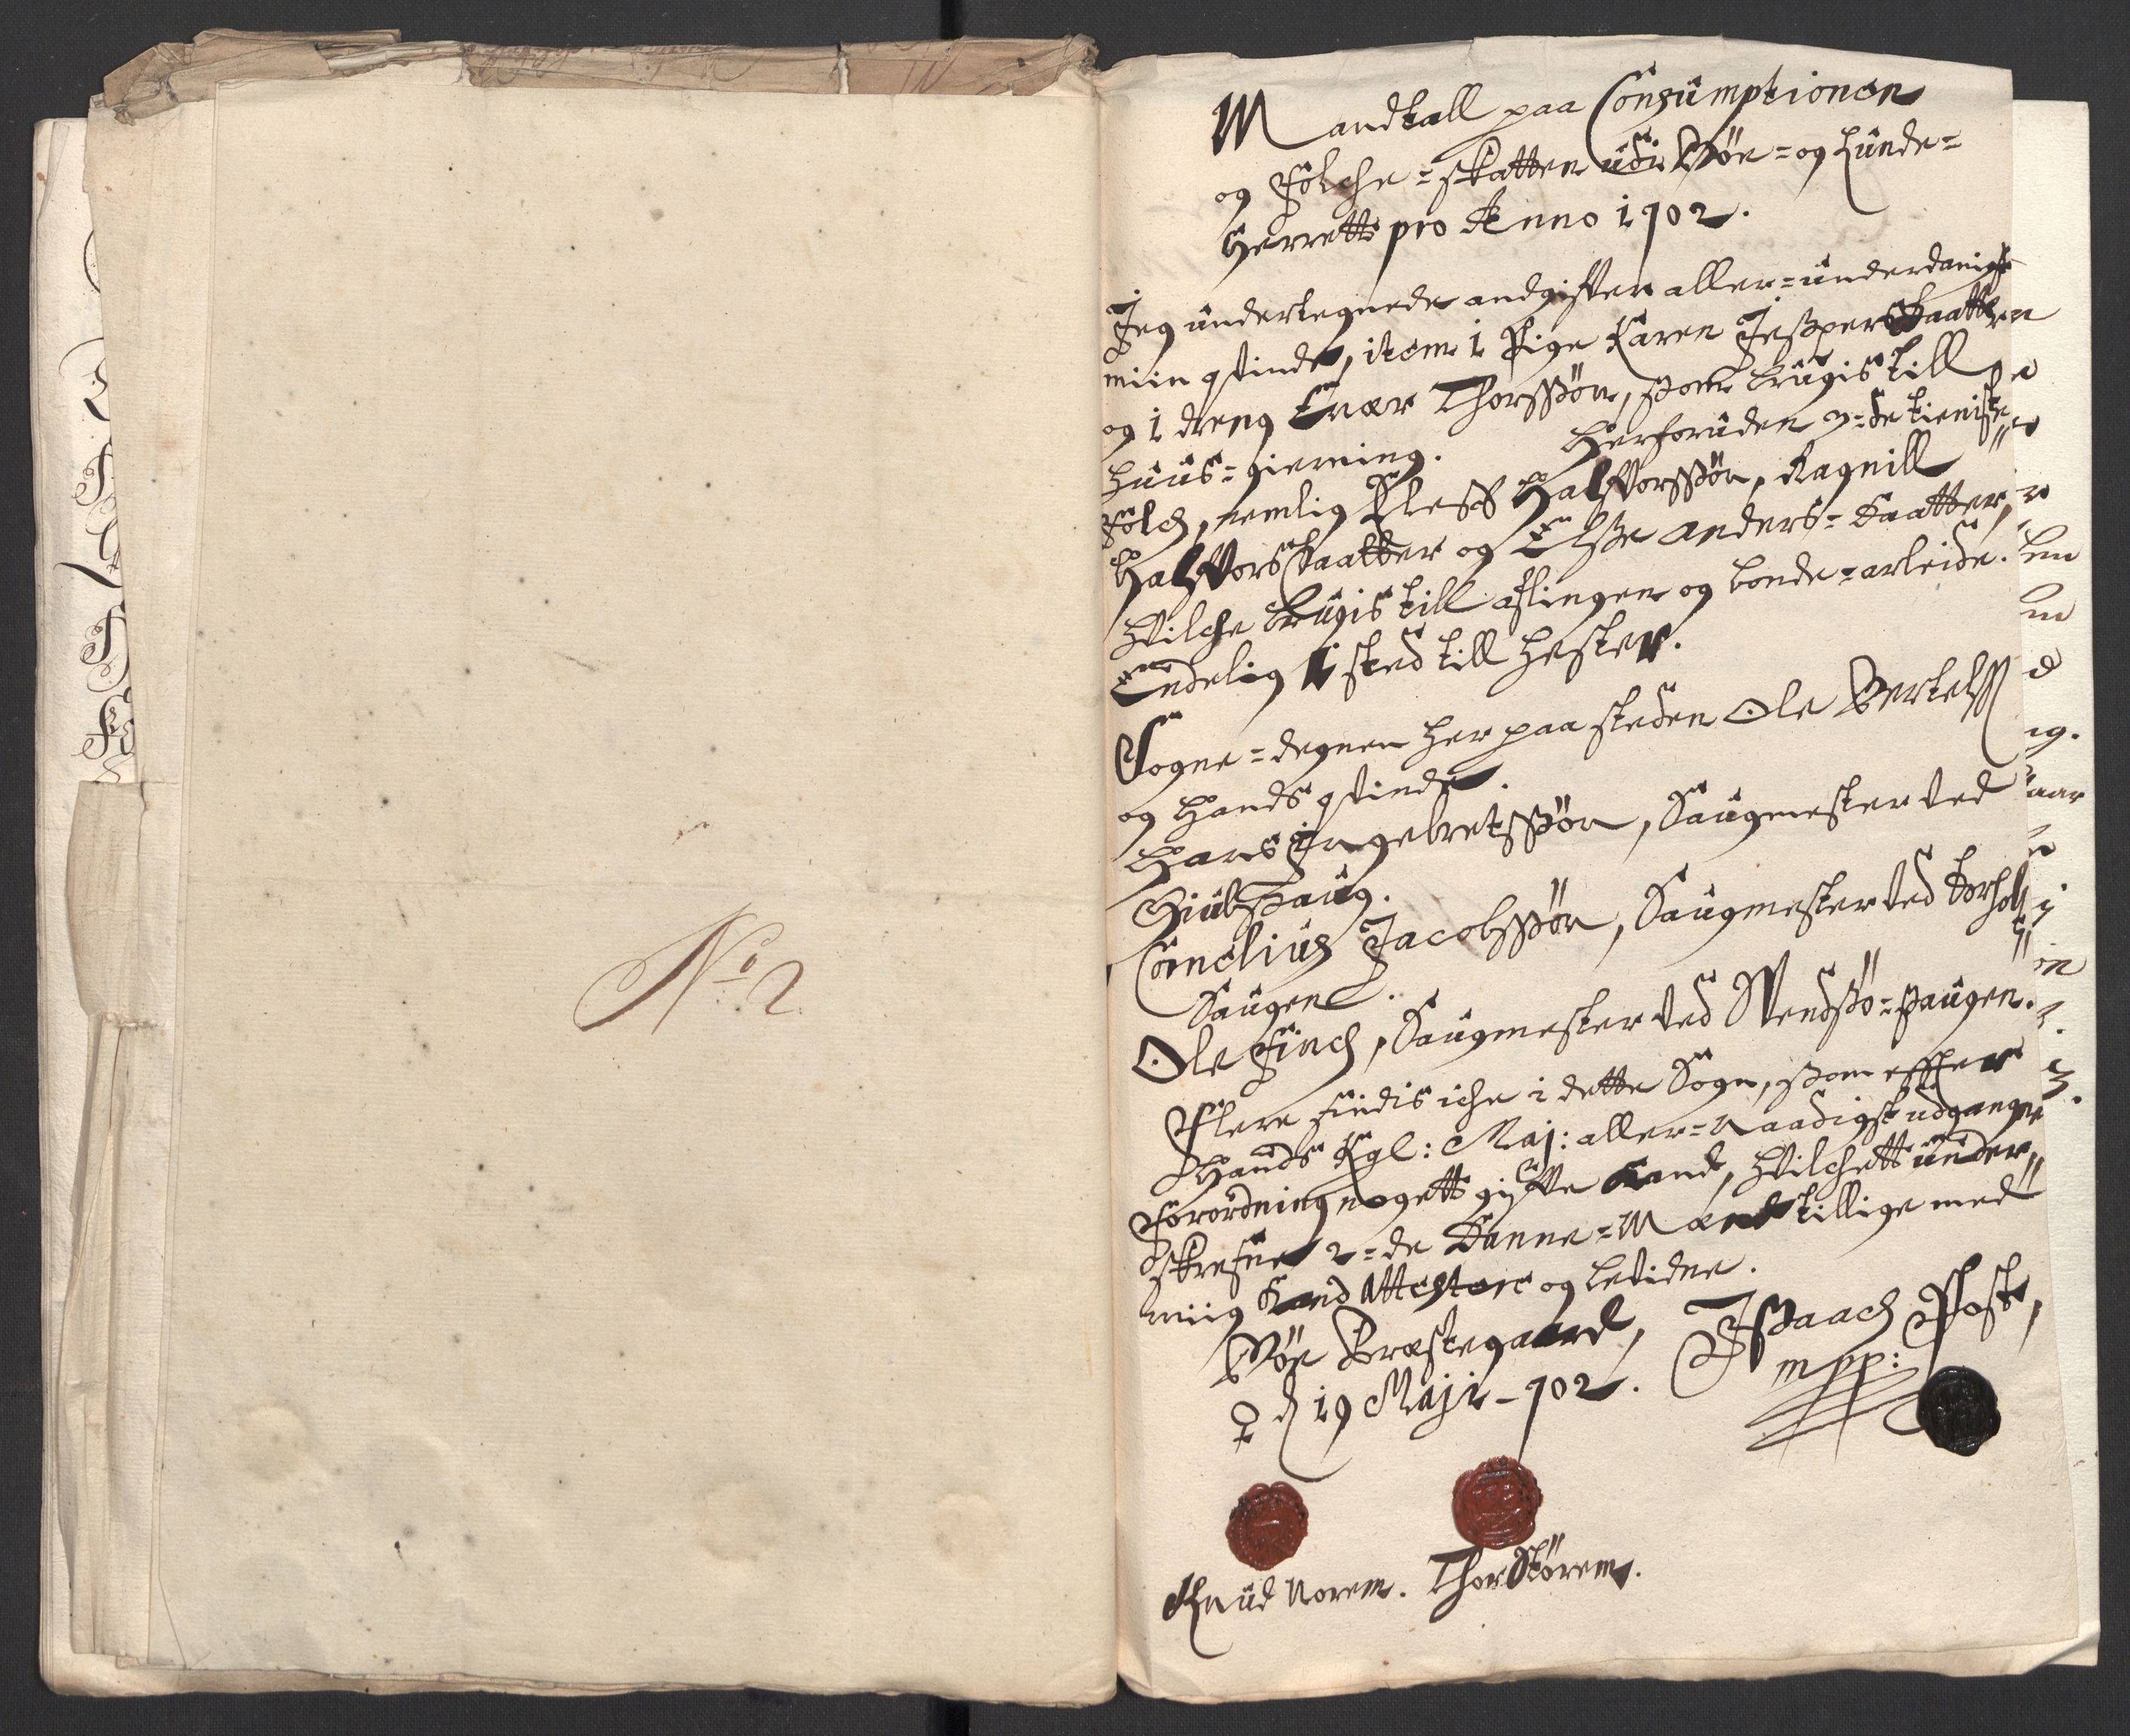 No 2.
Mandtall paa Consumptionen
og Folche-skatten udi Bøe- og Lunde-
Herrett pro Anno 1702.
Jeg undertegnede andgifver aller-underdanigst
miin qvinde, item 1 Pige Karen Jespersdaatter
og 1 dreng Enær Thorssøn, som brugis till
huus-gierning. Herforuden 3-de tieniste
folch, nemlig Kless Halvorssøn, Ragnill
Halvorsdaatter og Elsse Anders-daatter,
hvilche brugis till aflingen og bonde-arbeide.
Endelig 1 sted till hester.
Sogne-degnen her paa steden Ole Bertelss
og hands qvinde.
Hans Ingebretssøn, Saugmester ved
Hiulsaug.
Cornelius Jacobssøn, Saugmester ved Borholt
Saugen.
Ole Finch, Saugmester ved Vendsø-saugen.
Flere findis iche i dette Sogn, som effter
Hands Kgl: Maj: aller-naadigst udgangne
forordning nogett gifve kand, hvilchett under,,
skrefne 2-de Danne-Mænd tillige med
miig kand attestere og bevidne.
Bøe Præstegaard,
♀ d 19 Maji - 702.
Issaach Post,
mpp:
Knud Norem. Thor Størem.